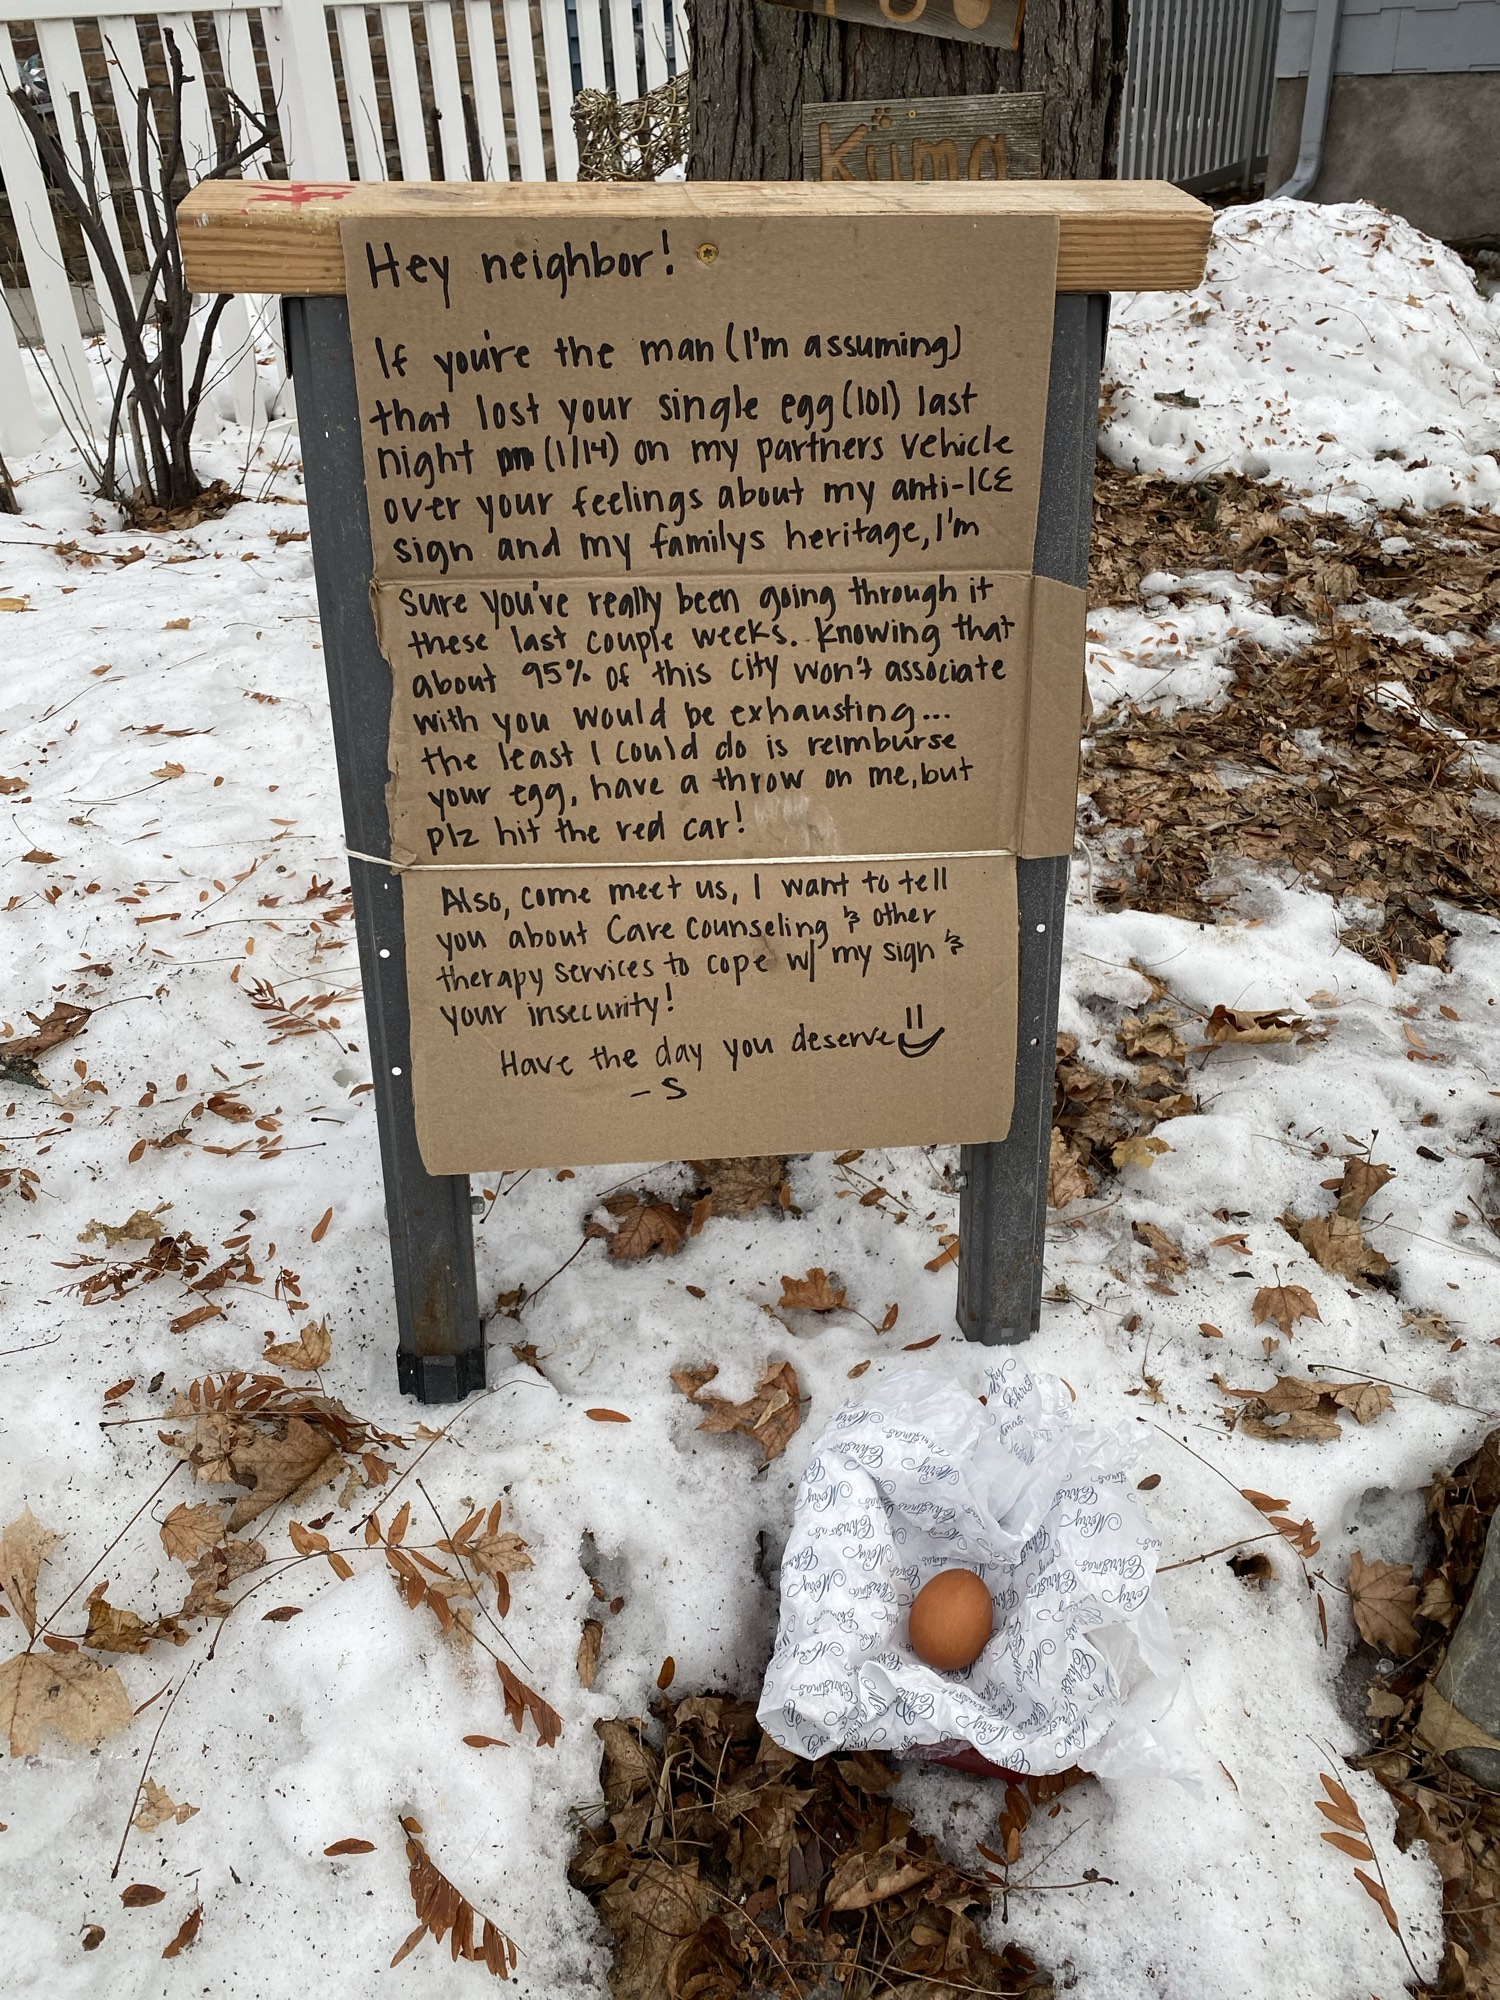 Kuma
Hey neighbor!
If you're the man (I'm assuming)
that lost your single egg (lol) last
night (1/14) on my partners vehicle
over your feelings about my anti-ICE
sign and my familys heritage, I'm
sure you've really been going through it
these last couple weeks. Knowing that
about 95% of this city won't associate
with you would be exhausting...
the least I could do is reimburse
your egg, have a throw on me, but
plz hit the red car!
Also, come meet us, I want to tell
you about Care Counseling & other
therapy services to cope w/ my sign &
your insecurity!
Have the day you deserve
- S
Merry Christmas